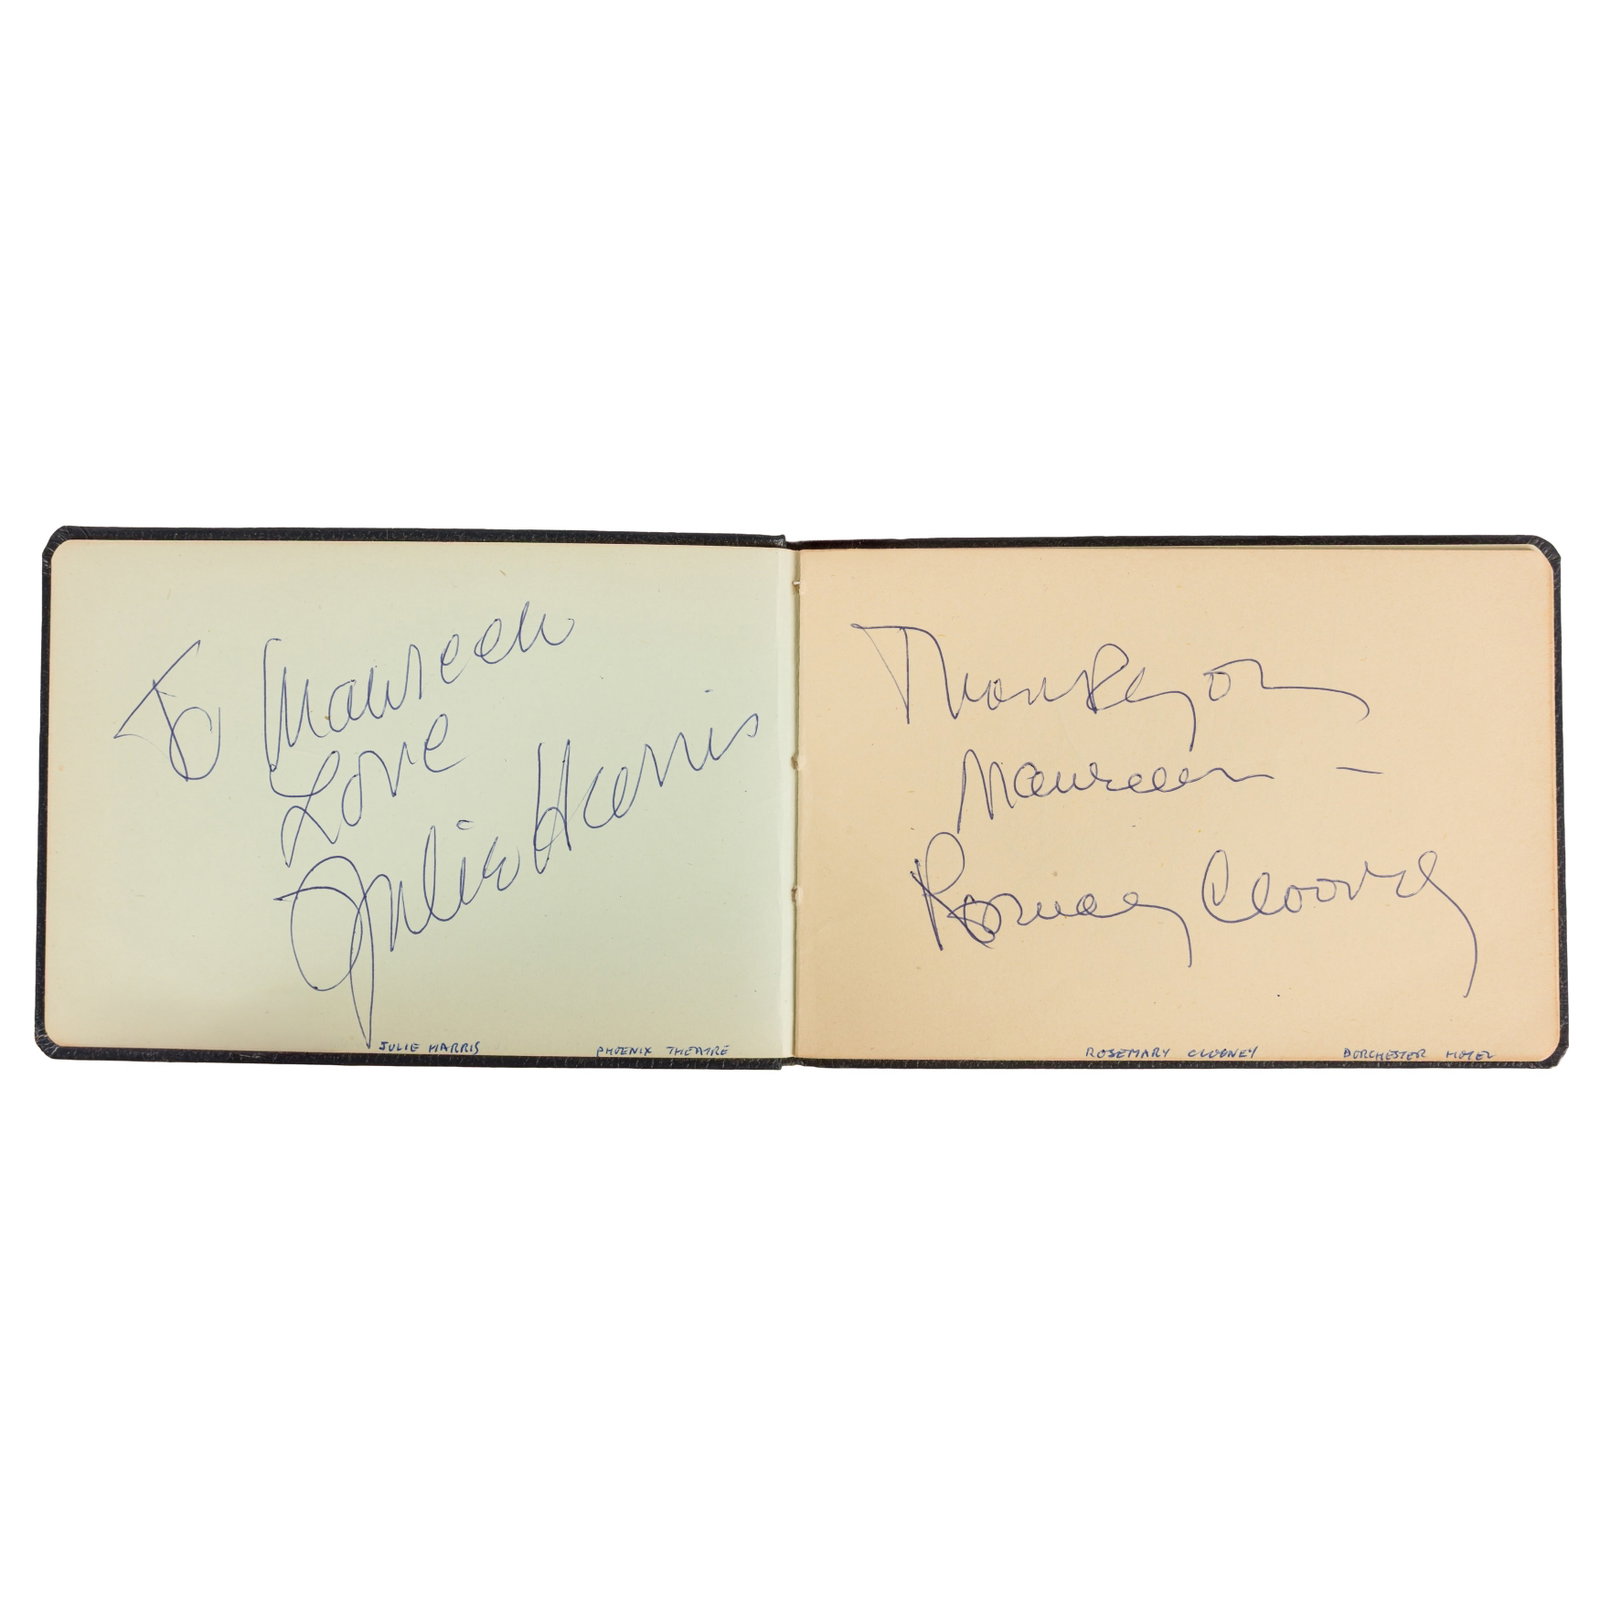 To Maureen
Love
Julie Harris
JULIE HARRIS PHOENIX THEATRE
Thank you
Maureen –
Rosemary Clooney
ROSEMARY CLOONEY DORCHESTER HOTEL